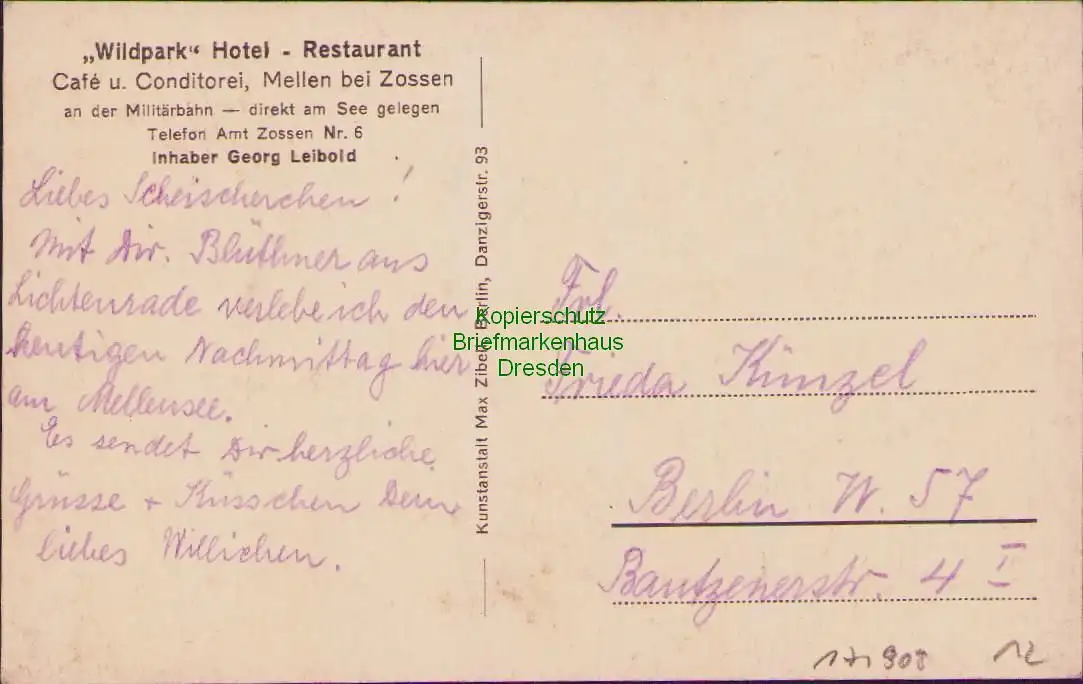 „Wildpark“ Hotel - Restaurant
Café u. Conditorei, Mellen bei Zossen
an der Militärbahn — direkt am See gelegen
Telefon Amt Zossen Nr. 6
Inhaber Georg Leibold
Liebes Scheischerchen!
Mit Dir. Blüthner aus
Lichtenrade verlebe ich den
heutigen Nachmittag hier
am Mellensee.
Es sendet Dir herzliche
Grüsse + Küsschen Dein
liebes Willichen.
Kunstanstalt Max Zibell Berlin, Danzigerstr. 93
Kopierschutz
Briefmarkenhaus
Dresden
Frl.
Frieda Künzel
Berlin W. 57
Bautzenerstr. 4 I
171908
12